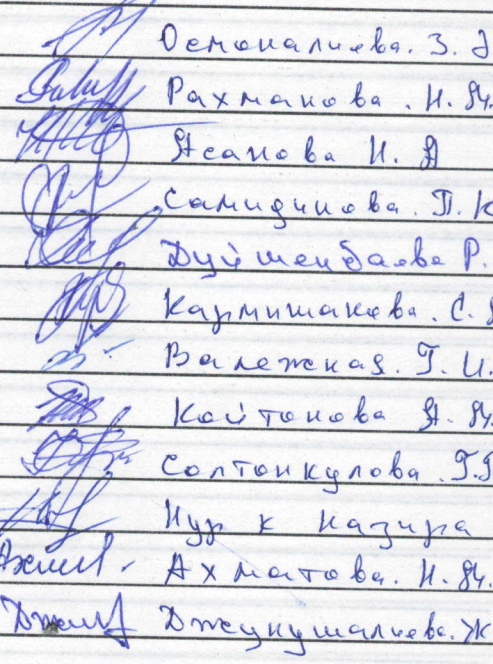 Осмоналиева. З. Э
Рахманова. Н.
Асанова Н. А
Самидинова. П. К
Дуйшенбаева Р.
Кармишакова. С.
Валежная. Г. И.
Койтонова А.
Солтонкулова. Г.
Нур к Назира
Ахматова. Н.
Джунушалиева. Ж